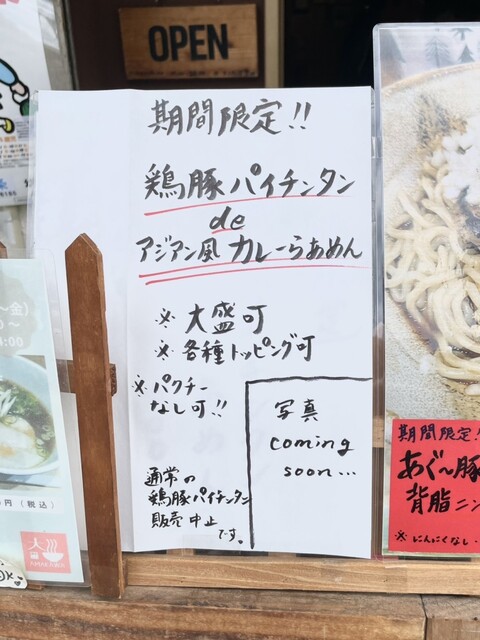 OPEN
期間限定!!
鶏豚パイチンタン
de
アジアン風 カレーらあめん
※ 大盛可
※ 各種トッピング可
※ パクチー
なし可!!
写真
coming
soon...
通常の
鶏豚パイチンタン
販売中止
です。
期間限定!!
あぐ〜豚
背脂ニン
※にんにくなし・
〜金)
:00
円(税込)